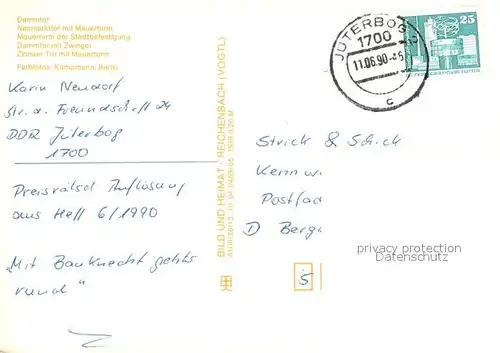 Dammtor
Neumarkttor mit Mauerturm
Mauerturm der Stadtbefestigung
Dammtor mit Zwinger
Zinnaer Tor mit Mauerturm
Farbfotos: Kampmann, Berlin
Karin Neudorf
Str. d. Freundschaft 24
DDR Jüterbog
1700
Preisrätsel Auflösung
aus Heft 6/1990
„Mit Bauknecht geht's
rund"
BILD UND HEIMAT · REICHENBACH (VOGTL)
JÜTERBOG
1700
11.06.90
c
25
Strick & Schick
Kenn w
Postfac
D Berg
privacy protection
Datenschutz
5